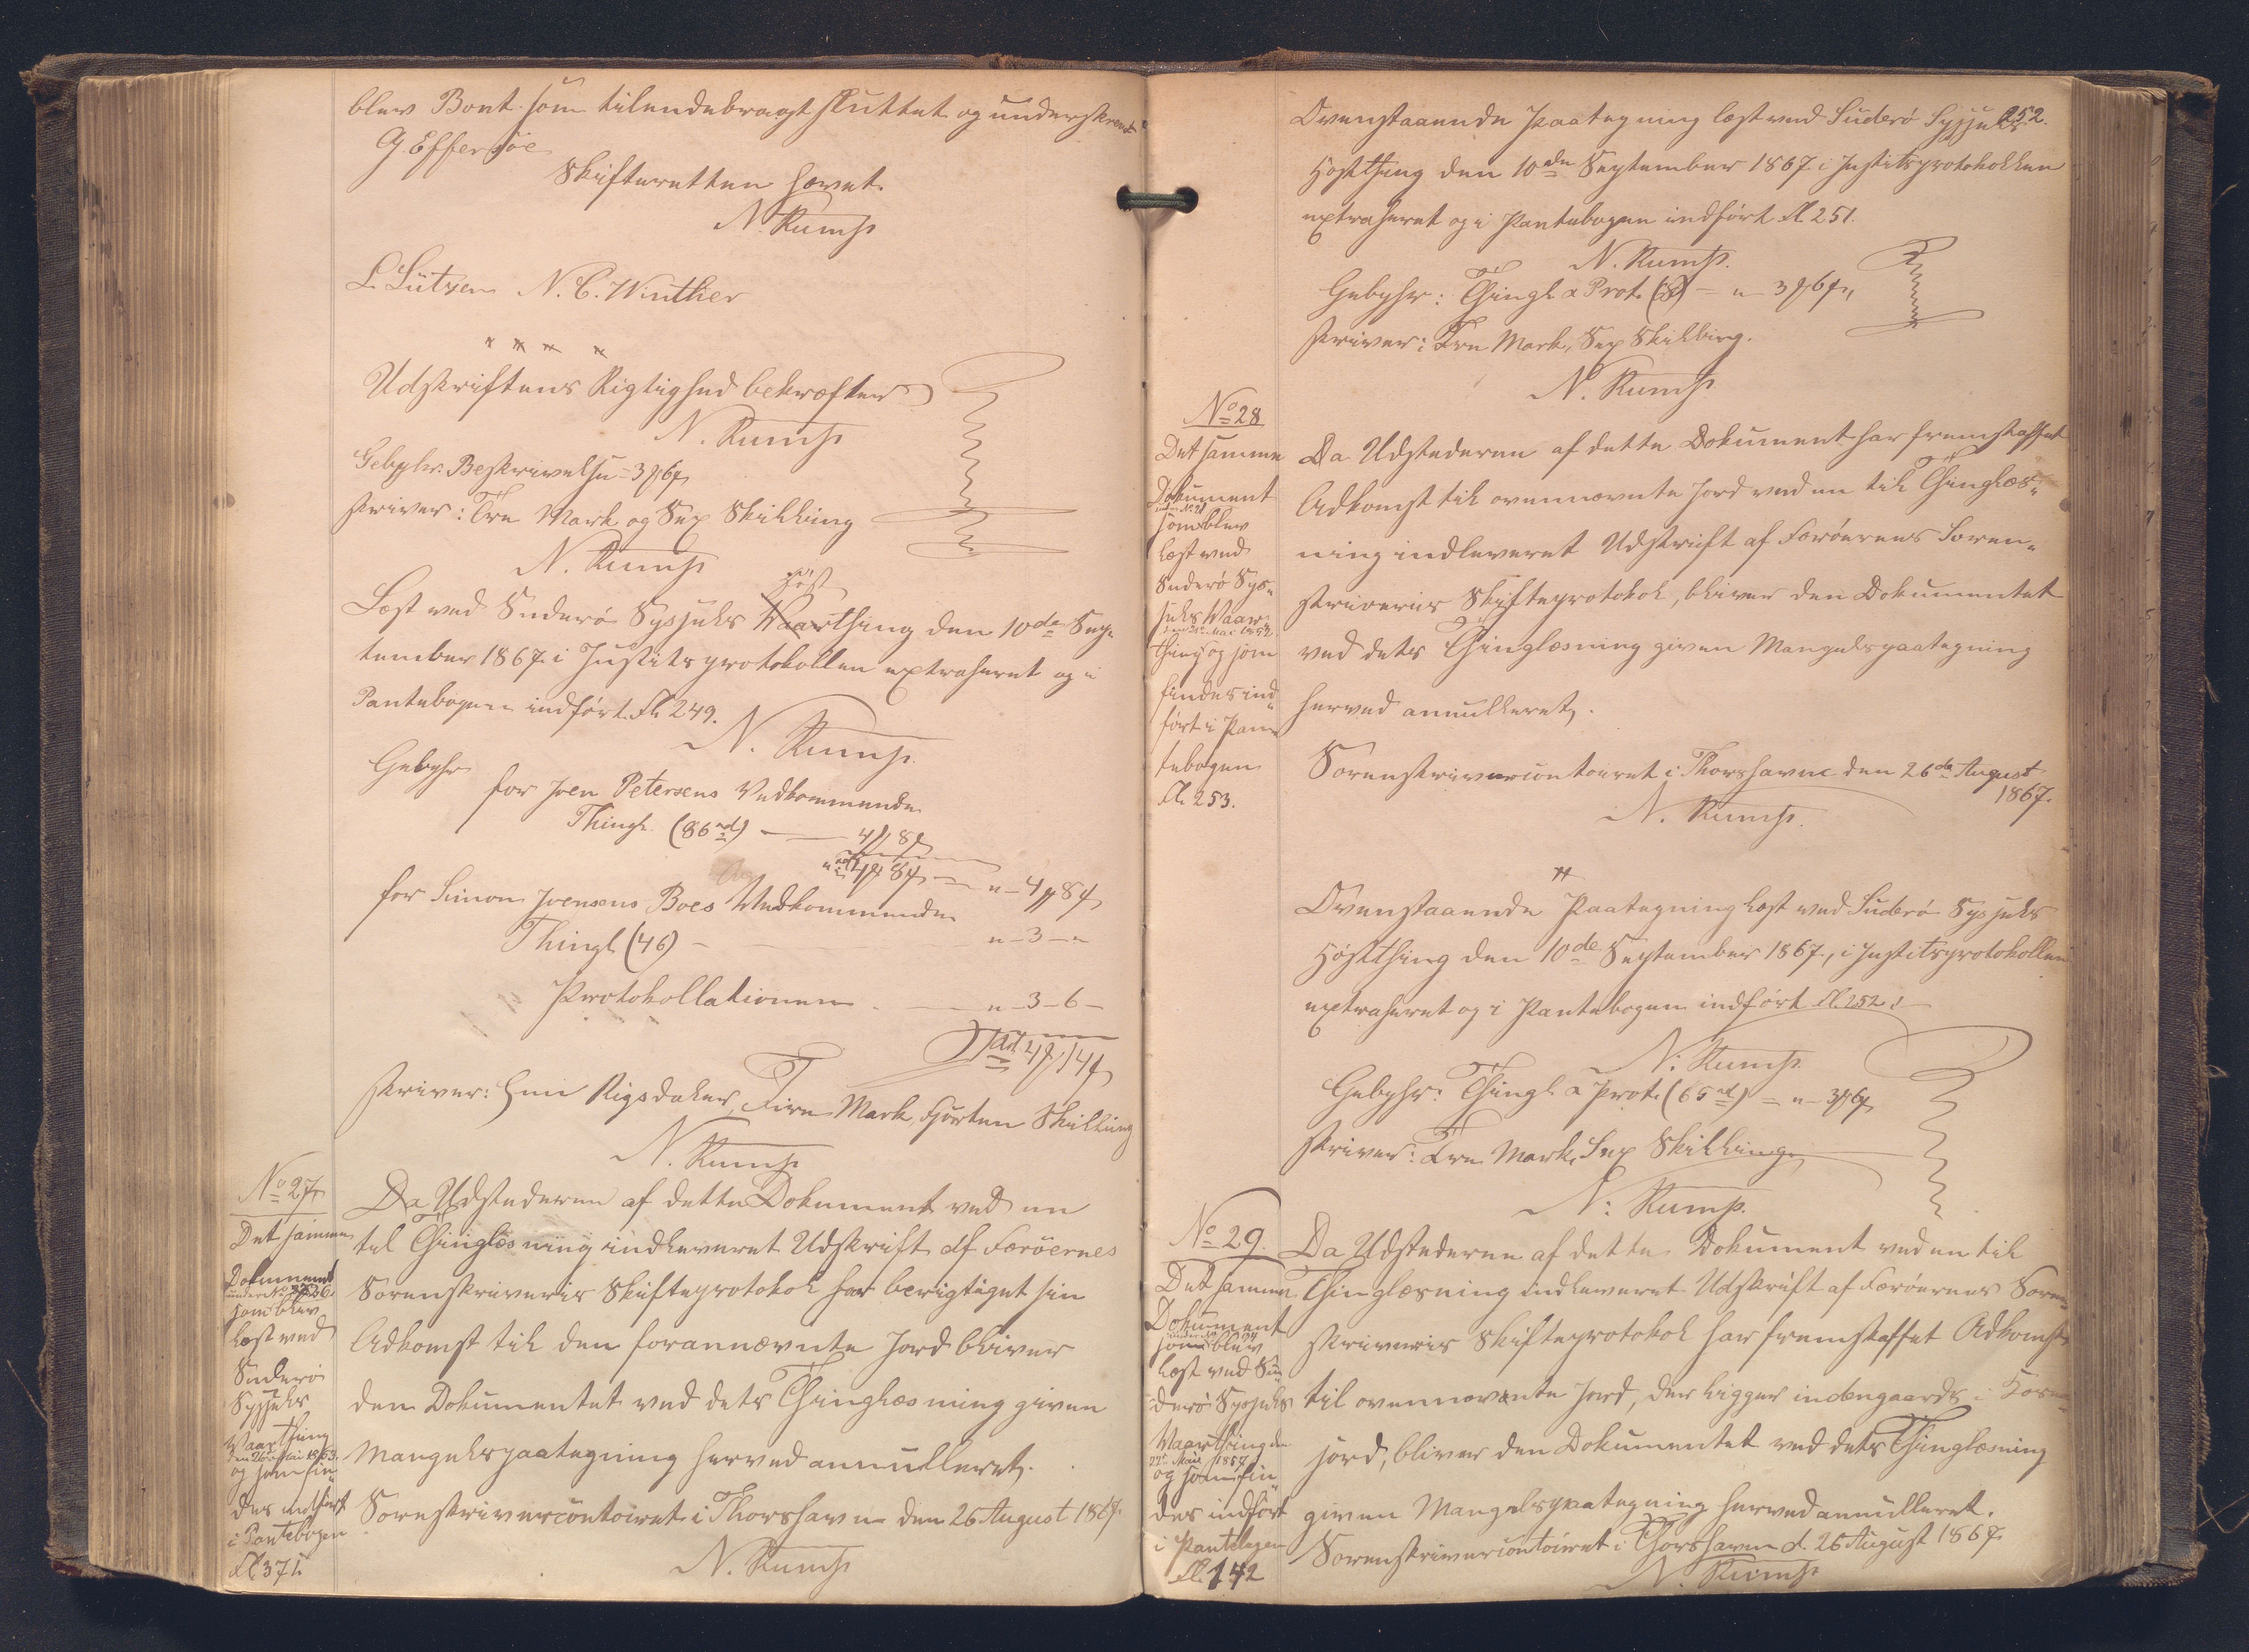 blev Boet som tilendebragt sluttet og underskrevet
G. Effersöe
Skifteretten hævet.
N. Rump
L. Lützen N. C. Winther
Udskriftens Rigtighed bekræfter
N. Rump
Gebyhr: Beskrivelse = 3 6
skriver: Tre Mark og Sex Skilling
N. Rump
Høst
Læst ved Suderö Sysjels Vaarthing den 10de Sep-
tember 1867 i Justitsprotokollen extraheret og i
Pantebogen indført Fl. 249.
N. Rump.
Gebyhr
for Joen Petersens Vedkommende
Thingl. (86) — 4 8
4 8 — " 4 8
for Simon Joensens Boes Vedkommende
Thingl (46) — " - 3 - "
Protokollationen — " - 3 - 6 -
4 14
skriver: Een Rigsdaler, Fire Mark, Fjorten Skilling
N. Rump
No 27.
Det samme
Dokument
under No
som blev
læst ved
Suderö
Sysjels
Vaarthing
den 26 Mai 1863
og som fin-
des indført
i Pantebogen
Fl. 371.
Da Udstederen af dette Dokument ved en
til Thinglæsning indleveret Udskrift af Færöernes
Sorenskriveris Skifteprotokol har berigtiget sin
Adkomst til den forannævnte Jord bliver
den Dokumentet ved dets Thinglæsning given
Mangelspaategning herved annulleret.
Sorenskrivercontoiret i Thorshavn den 26 August 1867.
N. Rump
252.
Ovenstaaende Paategning læst ved Suderö Sysjels
Høstthing den 10de September 1867 i Justitsprotokollen
extraheret og i Pantebogen indført Fl. 251.
N. Rump.
Gebyhr: Thingl & Prot. — " 3 6
skriver: Tre Mark, Sex Skilling.
N. Rump
No 28
Det samme
Dokument
som blev
læst ved
Suderö Sys-
jels Vaar-
thing og som
findes ind-
ført i Pan-
tebogen
Fl. 253.
Da Udstederen af dette Dokument har fremskaffet
Adkomst til ovennævnte Jord ved en til Thinglæs-
ning indleveret Udskrift af Færöernes Soren-
skriveris Skifteprotokol, bliver den Dokumentet
ved dets Thinglæsning given Mangelspaategning
herved annulleret.
Sorenskrivercontoiret i Thorshavn den 26de August
1867.
N. Rump.
Ovenstaaende Paategning læst ved Suderö Sysjels
Høstthing den 10de September 1867, i Justitsprotokollen
extraheret og i Pantebogen indført Fl. 252.
N. Rump.
Gebyhr: Thingl & Prot. (65) = " 3 6
skriver: Tre Mark, Sex Skilling
N. Rump.
No 29.
Det samme
Dokument
som blev
læst ved Su-
derö Sysjels
Vaarthing den
22 Mai 1857
og som fin-
des indført
i Pantebogen
Fl. 142
Da Udstederen af dette Dokument ved en til
Thinglæsning indleveret Udskrift af Færöernes Soren-
skriveris Skifteprotokol har fremskaffet Adkomst
til ovennævnte Jord, der ligger indengaards i
jord, bliver den Dokumentet ved dets Thinglæsning
given Mangelspaategning herved annulleret.
Sorenskrivercontoiret i Thorshavn d. 26 August 1867.
N. Rump